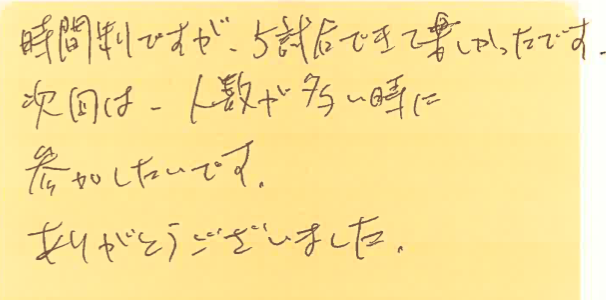 時間制ですが、5試合できて楽しかったです。
次回は、人数が多い時に
参加したいです。
ありがとうございました。